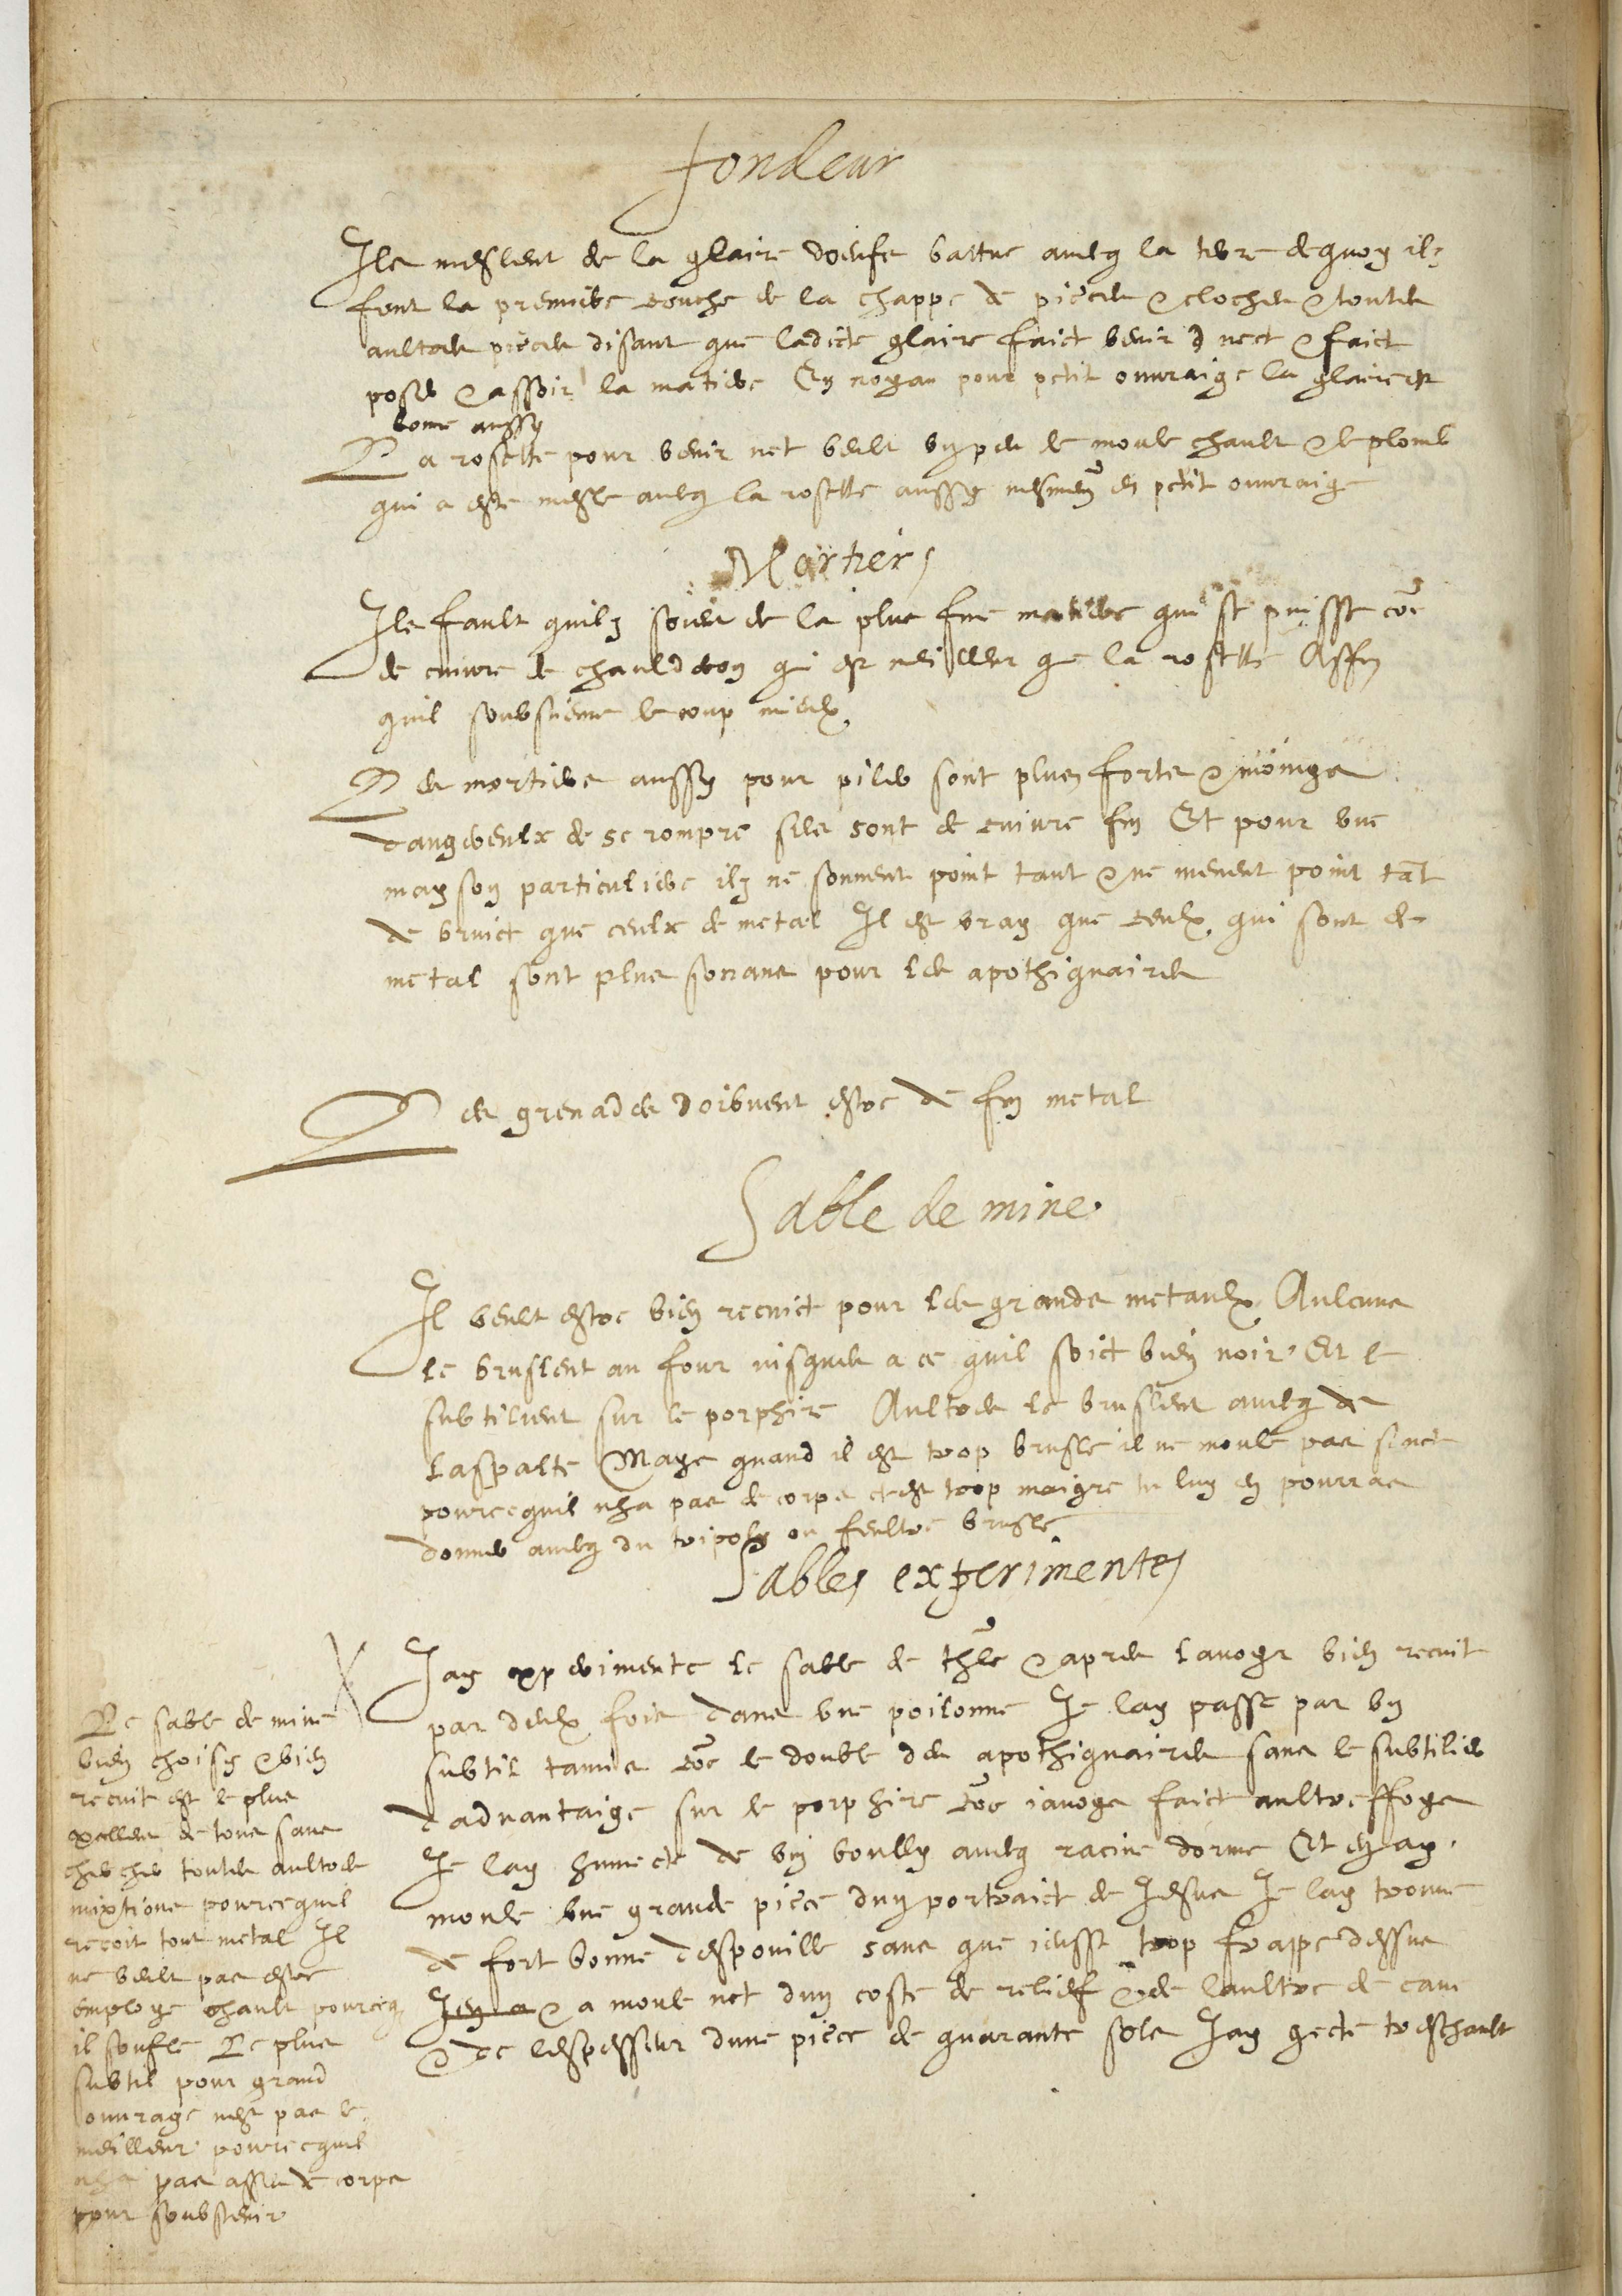 fondeur
Ils meslent de la glaire doeufs battue avecq la terre de quoy ilz
font la premiere couche de la chappe de pieces & cloches & toutes
aultres pieces disant que ladicte glaire faict venir net & faict
poser & assoir la matiere En noyau pour petit ouvraige la glaire est
bone aussy
La rosette pour venir net veult un peu de moule chault & le plomb
qui a este mesle avecq la rosette aussy mesmem en petit ouvraige
Mortiers
Ils fault quilz soient de la plus fine matiere qui se puisse coe
de cuivre de chaulderon qui est meilleur que la rosette Affin
quil soubstienne le coup mieulx
Les mortiers aussy pour piler sont plus forts & moings
dangereulx de se rompre sils sont de cuivre fin Et pour une
mayson particuliere ilz ne sonnent point tant & ne menent point tat
de bruict que ceulx de metal Il est vray que ceulx qui sont de
metal sont plus sonans pour les apothiquaires
Les grenades doibvent estre de fin metal
Sable de mine
Il veult estre bien recuict pour les grands metaulx Aulcuns
le bruslent au four jusques a ce quil soict bien noir Et le
subtilient sur le porphire Aultres le bruslent avecq de
laspalte Mays quand il est trop brusle il ne moule pas si nect
pourcequil nha pas de corps & est trop maigre tu luy en pourras
donner avecq du tripoly ou feultre brusle
Sables experimentes
Jay experimente le sable de thle & apres lavoyr bien recuit
par deulx fois dans une poilonne Je lay passe par un
subtil tamis coe le double des apothiquaires sans le subtilier
dadvantaige sur le porphire coe javoys faict aultreffoys
Je lay humecte de vin boully avecq racine dorme Et en ay
moule une grande piece dun portraict de Jesus Je lay trouve
de fort bonne despouille sans que jeusse trop frappe dessus
Jen a & a moule net dun coste de relief & de laultre de cave
& de lespesseur dune piece de quarante sols Jay gecte treschault
Le sable de mine
bien choisy & bien
recuit est le plus
excellent de tous sans
chercher toutes aultres
mixtions pourcequil
recoit tout metal Il
ne veult pas estre
employe chault pourceq
il soufle Le plus
subtil pour grand
ouvrage nest pas le
meilleur pourcequil
nha pas asses de corps
pour soubstenir